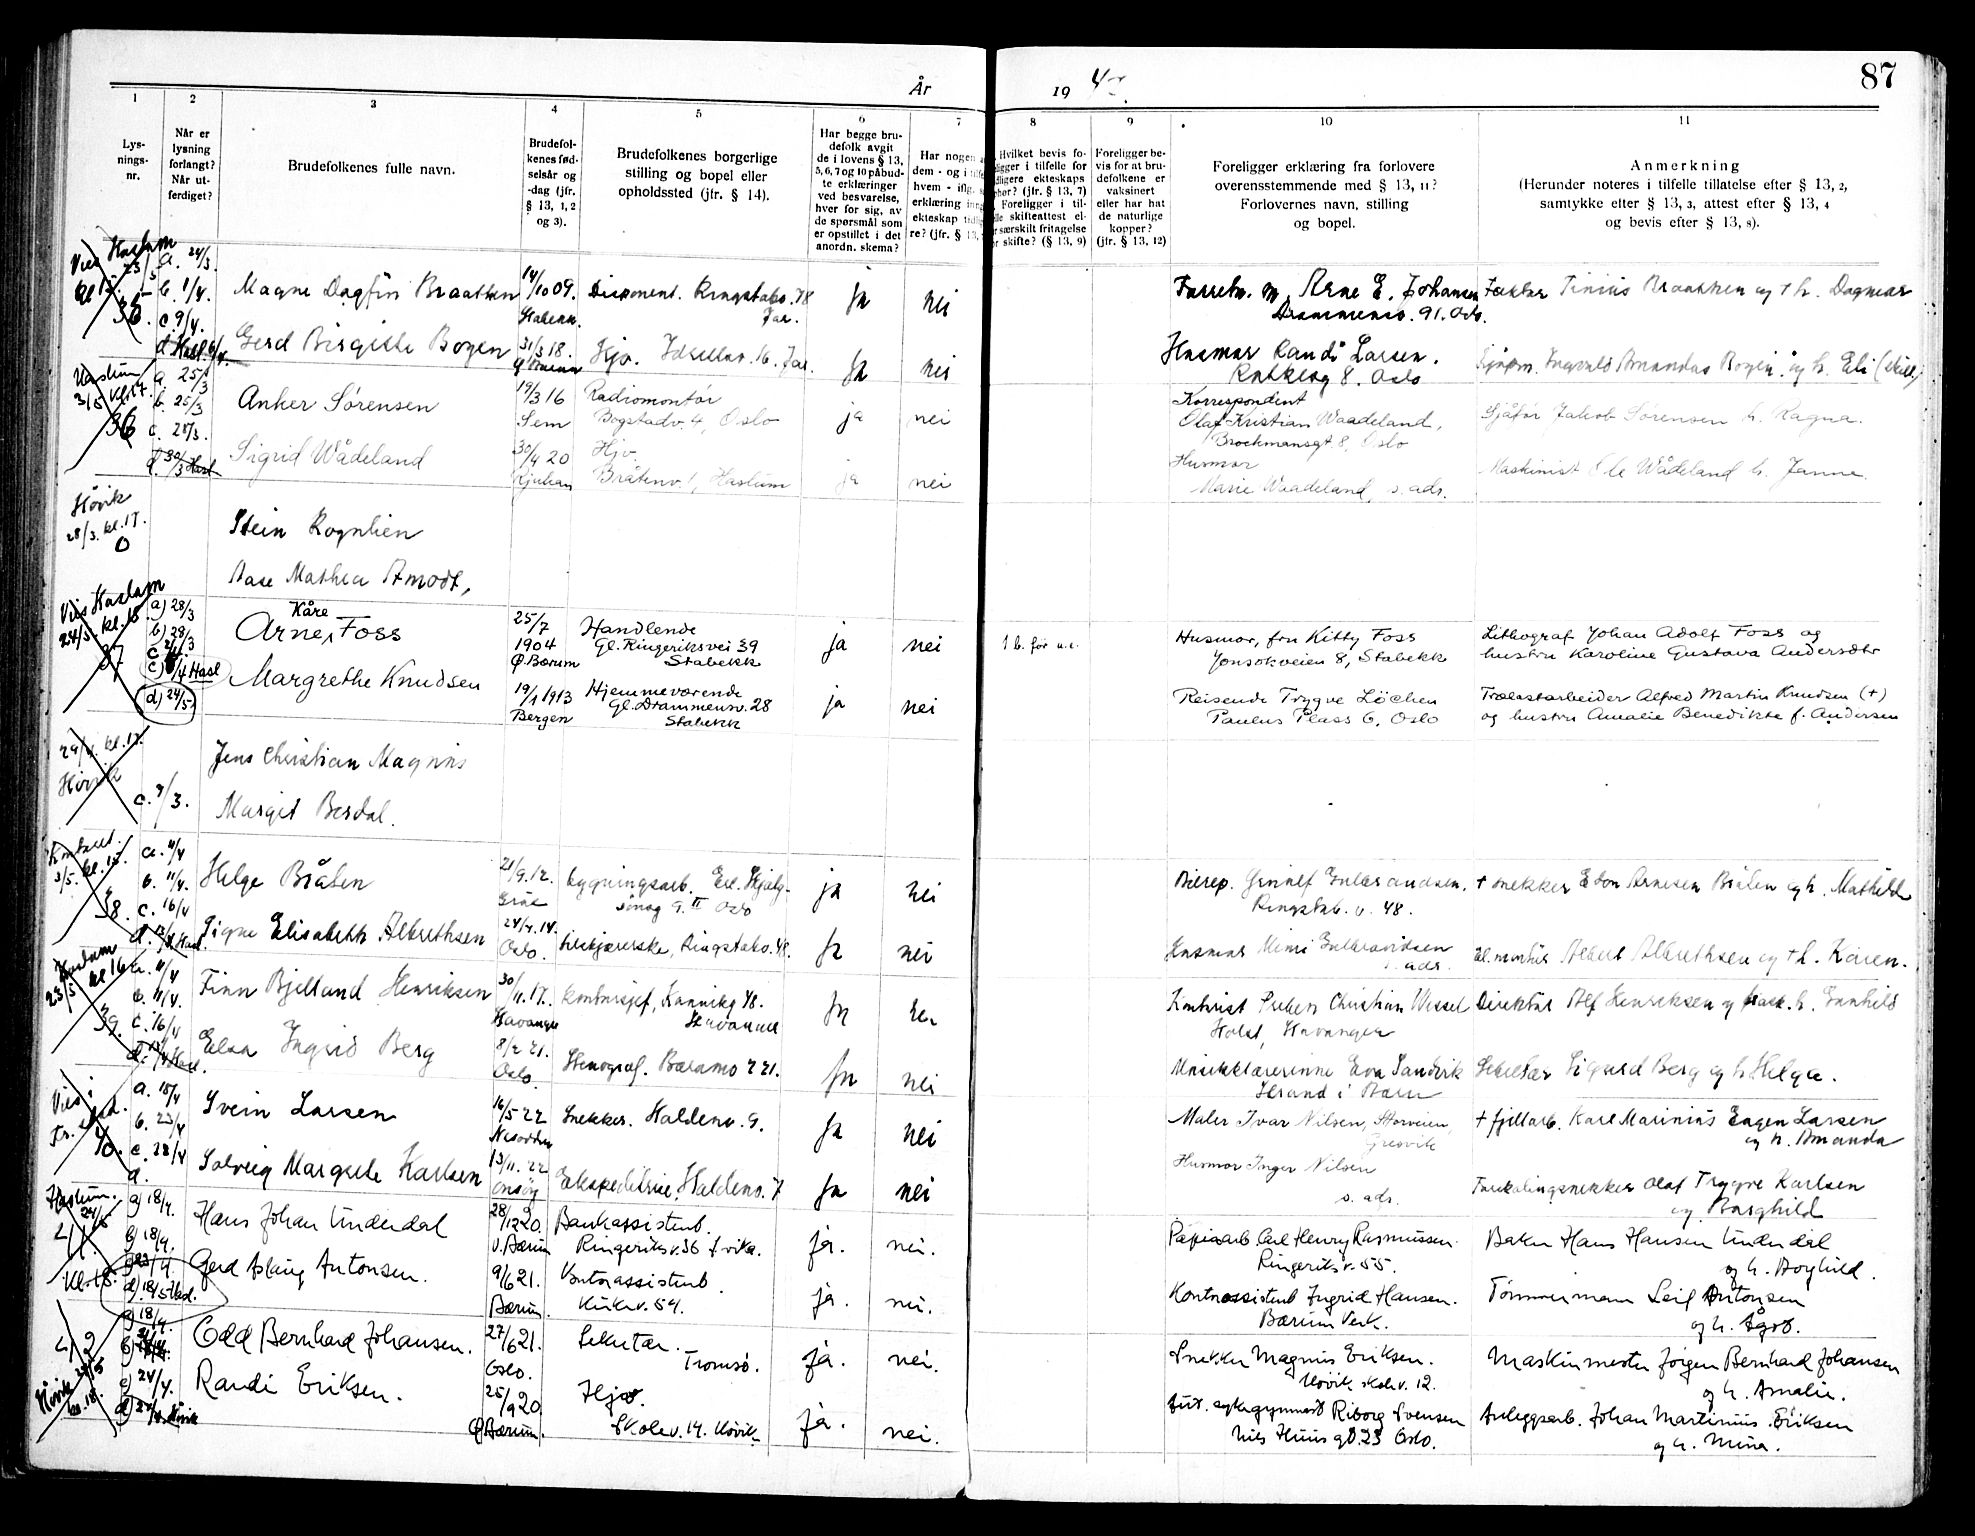 År
19 4
87
1
2
3
4
5
6
7
8
9
10
11
Lys-
nings-
nr.
Når er
lysning
forlangt?
Når ut-
ferdiget?
Brudefolkenes fulle navn.
Brudefol-
kenes fød-
selsår og
-dag (jfr.
§ 13, 1, 2
og 3).
Brudefolkenes borgerlige
stilling og bopel eller
opholdssted (jfr. § 14).
Har begge bru-
defolk avgit
de i lovens § 13,
5, 6, 7 og 10 påbud-
te erklæringer
ved besvarelse,
hver for sig, av
de spørsmål som
er opstillet i det
anordn. skema?
Har nogen
dem - og i
hvem - iflg.
erklæring
ekteskap
re? (jfr. § 13,
Hvilket bevis fo-
ligger i tilfelle for
ekteskaps
(jfr. § 13, 7)
Foreligger i til-
skifteattest el-
særskilt fritagelse
skifte? (§ 13, 9)
Foreligger be-
vis for at bru-
defolkene er
vaksinert
eller har hat
de naturlige
kopper?
(jfr. § 13, 12)
Foreligger erklæring fra forlovere
overensstemmende med § 13, 11?
Forlovernes navn, stilling
og bopel.
Anmerkning
(Herunder noteres i tilfelle tillatelse efter § 13, 2,
samtykke efter § 13, 3, attest efter § 13, 4
og bevis efter § 13, 8).
Vies Haslum
36.
a. 24/3.
b. 1/4.
c. 9/4.
Magne Dagfin Braathen
14/10 09.
Stabekk
Disponent. Ringstabv. 78
Jar.
ja
nei
Arne E. Johansen
Drammensv. 91. Oslo.
Faktor Tinius Braathen og + h. Dagmar
Gerd Birgitte Bogen
31/3 18.
Hjv. 16. Jar.
ja
nei
Husmor Randi Larsen.
8. Oslo
Ingvald Amandus Bogen og h. Eli
Haslum
3/5 kl. 17.
36
a. 25/3
b. 25/3
c. 28/3.
d. 30/3 Hasl
Anker Sørensen
19/3 16
Sem
Radiomontør
Bogstadv. 4, Oslo
ja
nei
Korrespondent
Olaf Kristian Waadeland,
Brochmansgt 8, Oslo
Sjåfør Jakob Sørensen h. Ragna.
Sigrid Wådeland
30/4 20
Hjv.
Bråtenv. 1, Haslum
ja
nei
Husmor
Marie Waadeland, s. adr.
Maskinist Ole Wådeland h. Janne.
Høvik
28/3. kl. 17.
0
Stein Rognlien
Aase Mathea Amodt,
Vies Haslum
24/5 kl. 18
37
a) 28/3
b) 28/3
4 Hasl
d) 24/5
Kåre
Arne, Foss
25/7
1904
Ø. Bærum
Handlende
Gl. Ringeriksvei 39
Stabekk
ja
nei
1 b. før u.e.
Husmor, fru Kitty Foss
Jonsokveien 8, Stabekk
Lithograf Johan Adolf Foss og
hustru Karoline Gustava Andersdtr
Margrethe Knudsen
19/1 1913
Bergen
Hjemmeværende
Gl. Drammensv. 28
Stabekk
ja
nei
Reisende Trygve Löchen
Paulus Plass 6, Oslo
Trælastarbeider Alfred Martin Knudsen (+)
og hustru Amalie Benedikte f. Andersen
kl. 17.
Høvik
c. /3.
Jens Christian Magnus
Margit Berdal.
3/5. kl. 15.
38.
a. 11/4
b. 11/4.
c. 16/4
Helge Bråten
21/9. 12.
bygningsarb.
9. II Oslo
ja
nei
Ringstab. v. 48.
+ snekker Edon Arnesen Bråten og h. Mathilde
Signe Elisabeth Albrethsen
24/4. 14.
Oslo.
Ringstabv. 48.
ja
nei
Husmor Mimi
adr.
El. montør Albert Albrethsen og + h. Karen.
Haslum
23/5 kl 16
39.
a. 11/4
b. 11/4.
c. 16/4
Finn Bjelland Henriksen
30/11. 17.
Stavanger
kontorsjef, Kannikg 48.
Stavanger
ja
nei
Preben Christian Wessel
Holst, Stavanger
Direktør Alf Henriksen og h. Gunhild
Elsa Ingrid Berg
8/2 21.
Oslo.
Stenograf.
ja
nei
Musikklærerinne Eva Sandvik
Strand i Bærum
Sekretær Sigurd Berg og h Helga.
Vies i
40.
a. 18/4
b. 23/4
c. 28/4
d.
Svein Larsen
16/5 22
Nesodden
Snekker. Haldenv. 9.
ja
nei
Maler Ivar Nilsen, Storveien,
Gresvik
+ fjellarb. Karl Marinius Eugen Larsen
og h. Amanda
Solveig Margrete Karlsen
13/11. 22
Onsøy
Ekspeditrise, Haldenv. 7
ja
nei
Husmor Inger Nilsen
s. adr.
Forskalingsnekker Olaf Trygve Karlsen
og Borghild
Haslum.
24/5
41.
Kl. 18.
a) 18/4.
b) 18/4.
c) 23/4.
d) 18/5 Hasl.
Hans Johan Underdal
28/12 20.
V. Bærum
Bankassistent.
Ringeriksv. 36 Svika.
ja.
nei.
Papirarb. Carl Henry Rasmussen.
Ringeriksv. 55.
Baker Hans Hansen Underdal
og h. Borghild.
Gerd Aslaug Antonsen.
9/6 21.
Bærum.
Kontorassistent
Kirkev. 59.
ja.
nei.
Kontorassistent Ingrid Hansen.
Bærum Verk.
Tømmermann Leif Antonsen
og h. Ågot.
42
Høvik 24/5
kl. 18.
a) 18/4.
c) 24/4.
Odd Bernhard Johansen.
27/6 21.
Oslo.
Sekretær.
Tromsø.
ja.
nei.
Snekker Magnus Eriksen.
Høvik skolev. 12.
Maskinmester Jørgen Bernhard Johansen
og h. Amalie.
Randi Eriksen.
25/9 20
Ø Bærum.
Hjv.
Skolev. 14. Høvik
ja.
nei.
Aut. sykegymnast Riborg Svensen
Nils Huus gt. 23 Oslo.
Anleggsarb. Johan Martinius Eriksen
og h. Mina.